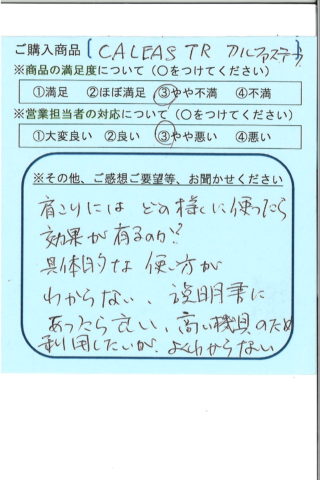 ご購入商品〔CALEAS TR カルファステラ〕
※商品の満足度について(○をつけてください)
①満足 ②ほぼ満足 ③やや不満 ④不満
※営業担当者の対応について(○をつけてください)
①大変良い ②良い ③やや悪い ④悪い
※その他、ご感想ご要望等、お聞かせください
肩こりには どの様に使ったら
効果が有るのか?
具体的な 使い方が
わからない、説明書に
あったら良い、高い機具のため
利用したいが、よくわからない